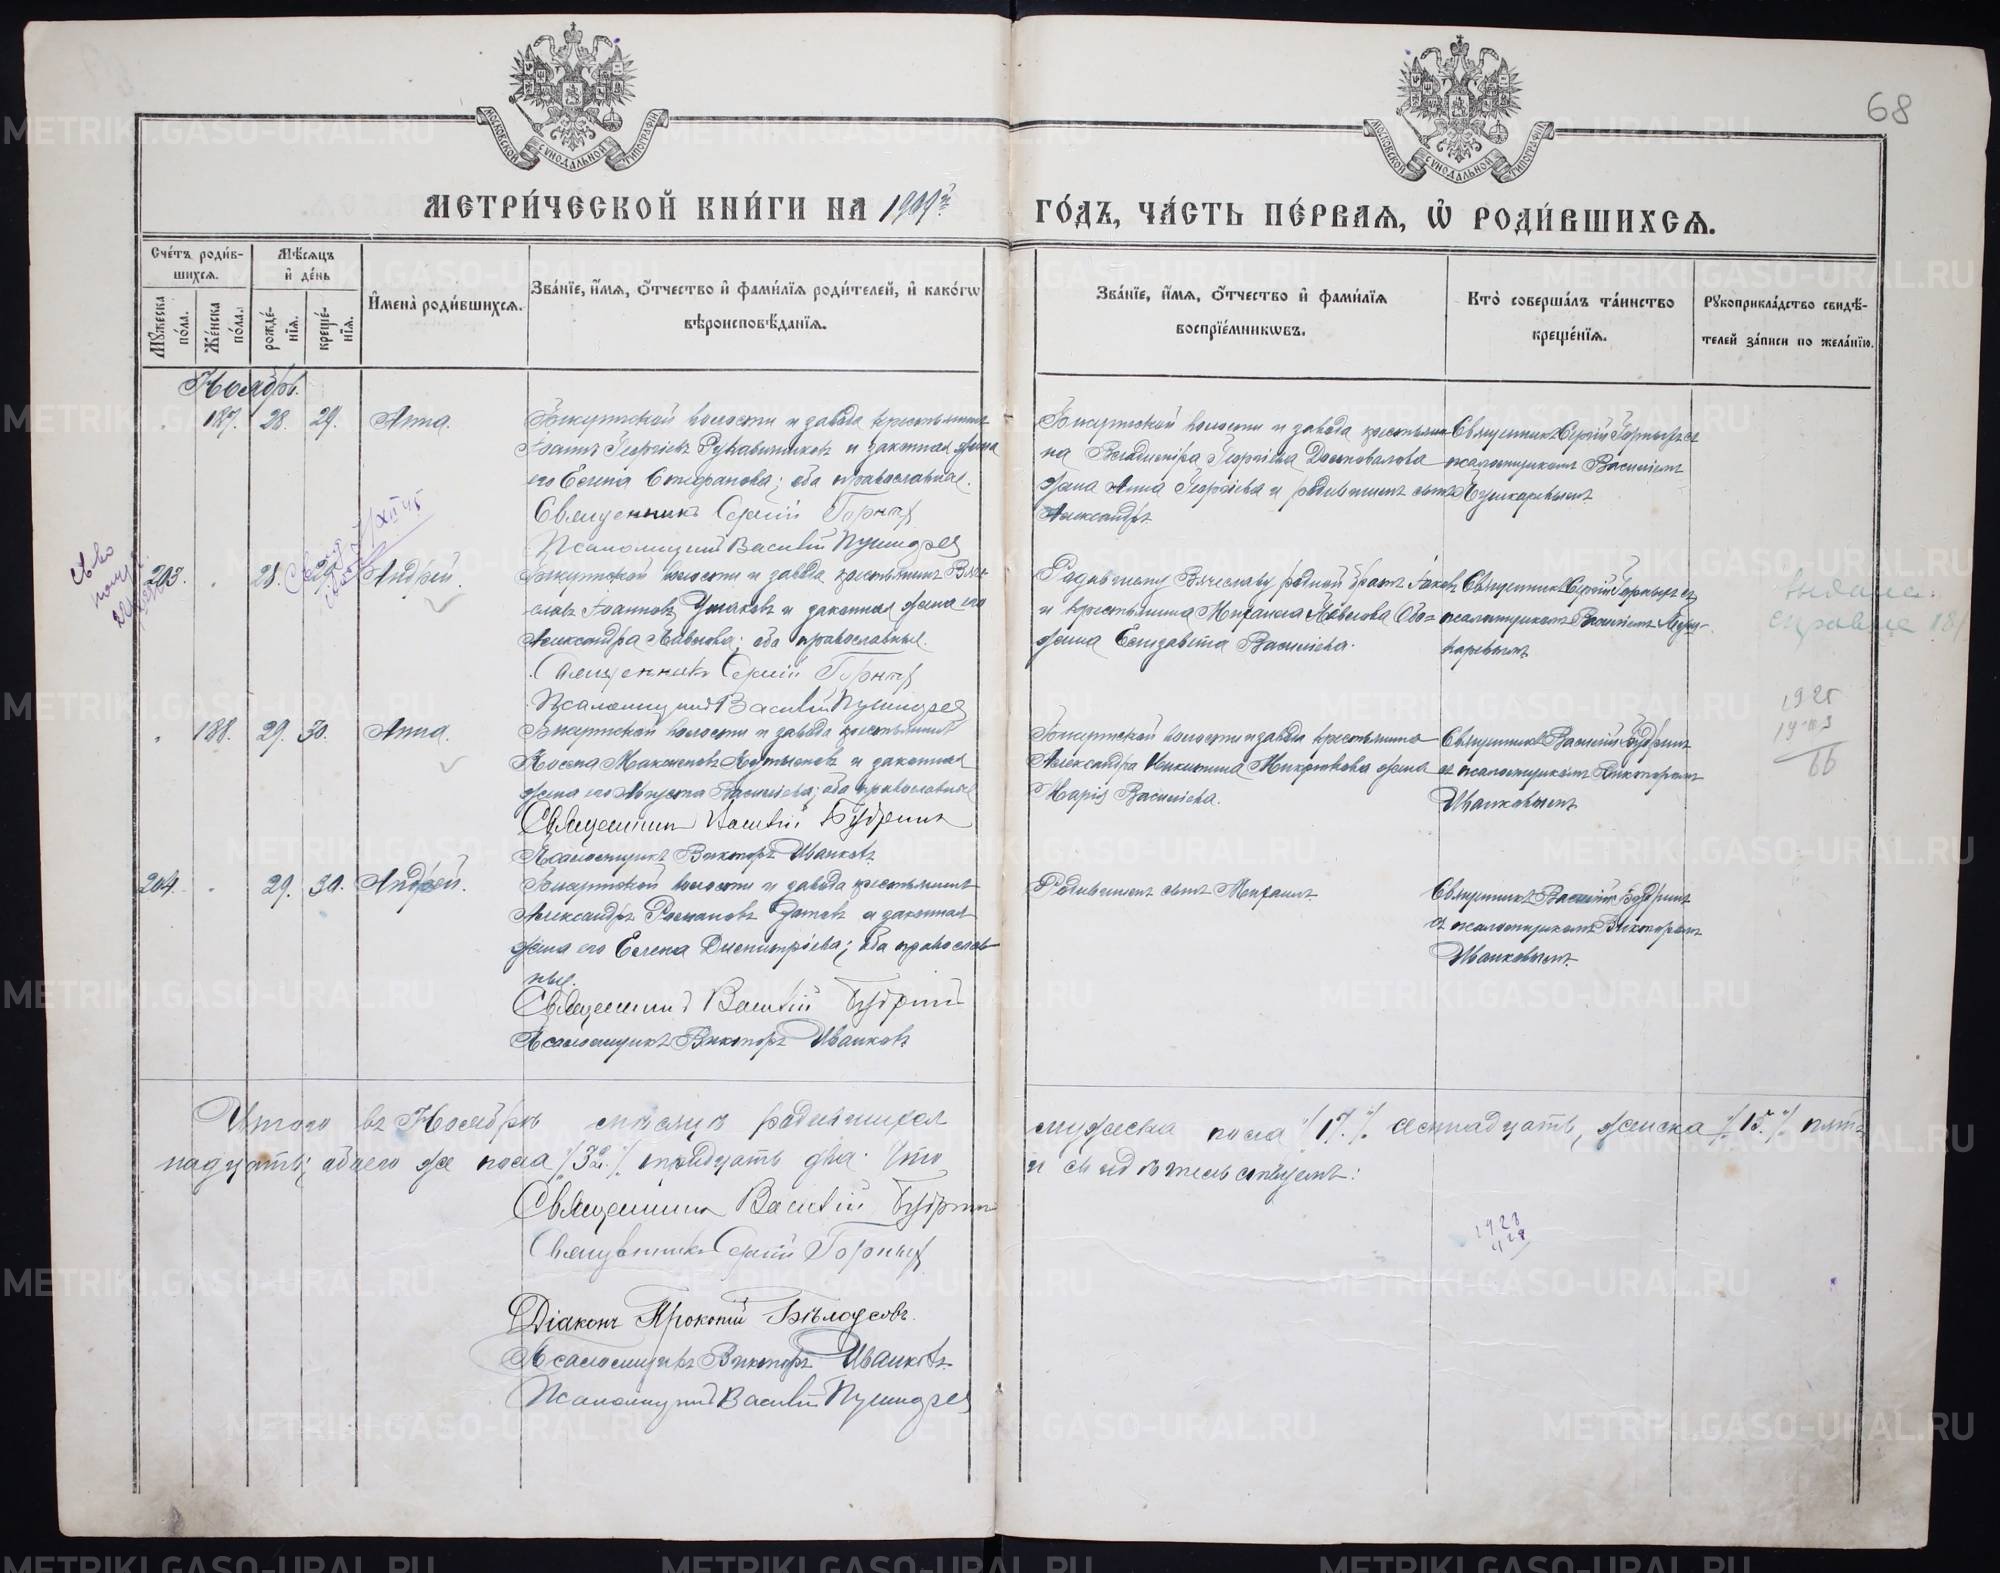 68
МОСКОВСКОЙ СѴНОДАЛЬНОЙ ТИПОГРАФІИ
МОСКОВСКОЙ СѴНОДАЛЬНОЙ ТИПОГРАФІИ
МЕТРИ́ЧЕСКОЙ КНИ́ГИ НА 1909й
ГО́ДЪ, ЧА́СТЬ ПЕ́РВАѦ, Ѡ҆ РОДИ́ВШИХСѦ.
Сче́тъ роди́в-
шихсѧ.
Мꙋ́жеска по́ла.
Же́нска по́ла.
Мѣ́сѧцъ
и҆ де́нь
рожде́-
нїѧ.
креще́-
нїѧ.
И҆мена̀ роди́вшихсѧ.
Зва́нїе, и҆́мѧ, ѻ҆́тчество и҆ фами́лїѧ роди́телей, и҆ како́гѡ
вѣроисповѣ́данїѧ.
Зва́нїе, и҆́мѧ, ѻ҆́тчество и҆ фами́лїѧ
воспрїе́мникѡвъ.
Кто̀ соверша́лъ та́инство
креще́нїѧ.
Рꙋкоприкла́дство свидѣ́-
телей за́писи по жела́нїю.
Ноябрь.
187. 28. 29. Анна.
волости и завода крестьянинъ
Іоаннъ Георгіевъ Рукавишниковъ и законная жена
его Елена Стефанова; оба православные.
Священникъ Сергій Горныхъ
Псаломщикъ Василій
волости и завода крестьяни-
на Владиміра Георгіева
жена Анна Георгіева и сынъ
Александръ
Священникъ Сергій Горныхъ съ
псаломщикомъ Василіемъ
203. " 28. 29. Андрей.
волости и завода крестьянинъ Вяче-
славъ Іоанновъ Ушаковъ и законная жена его
Александра Павлова; оба православные.
Священникъ Сергій Горныхъ
Псаломщикъ Василій
Вячеславу родной братъ Іаковъ
и крестьянина Михаила
жена Елизавета Василіева.
Священникъ Сергій Горныхъ съ
псаломщикомъ Василіемъ
выдана
справка 181
1925
1909
66
" 188. 29. 30. Анна.
волости и завода крестьянинъ
Максимовъ и законная
жена его Василіева; оба православные
Священникъ Василій Будринъ
Псаломщикъ Викторъ Иванковъ.
волости и завода крестьянина
Александра Никитина жена
Марія Василіева.
Священникъ Василій Будринъ
съ псаломщикомъ Викторомъ
Иванковымъ
204. " 29. 30. Андрей.
волости и завода крестьянинъ
Александръ Романовъ и законная
жена его Елена Димитріева; оба православ-
ные.
Священникъ Василій Будринъ
Псаломщикъ Викторъ Иванковъ
сынъ Михаилъ
Священникъ Василій Будринъ
съ псаломщикомъ Викторомъ
Иванковымъ.
Итого въ Ноябрѣ мѣсяцѣ родившихся
мужеска пола /17./. семнадцать, женска /.15./. пят-
надцать; обоего же пола /32./. тридцать два. Что
и свидѣтельствуемъ:
Священникъ Василій Будринъ
Священникъ Сергій Горныхъ
Діаконъ Прокопій Бѣлоусовъ.
Псаломщикъ Викторъ Иванковъ.
Псаломщикъ Василій
METRIKI.GASO-URAL.RU